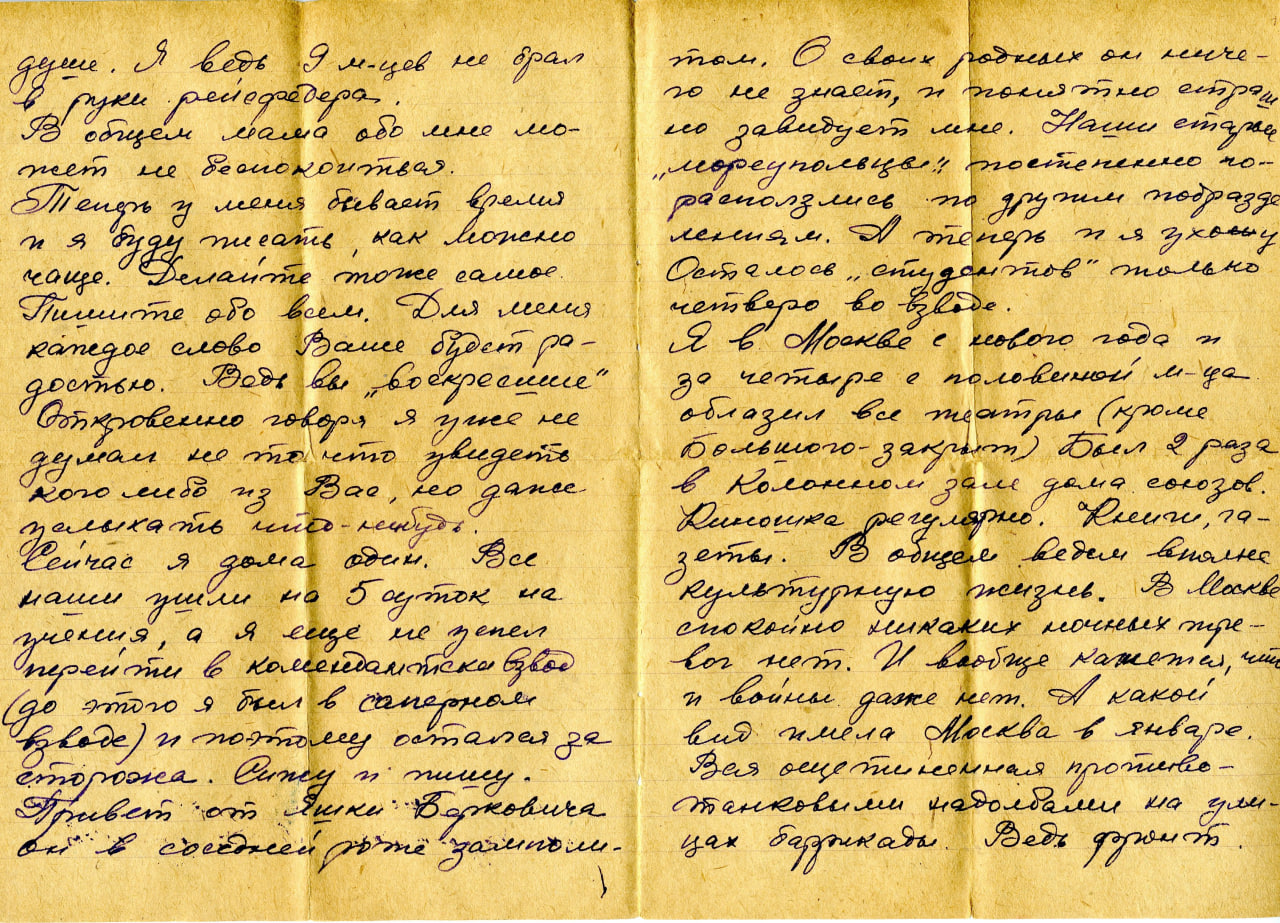 душе. Я ведь 9 м-цев не брал
в руки рейсфедера.
В общем мама обо мне мо-
жет не беспокоиться.
Теперь у меня бывает время
и я буду писать, как можно
чаще. Делайте тоже самое.
Пишите обо всем. Для меня
каждое слово Ваше будет ра-
достью. Ведь вы „воскресшие"
Откровенно говоря я уже не
думал не то что увидеть
кого либо из Вас, но даже
услыхать что-нибудь.
Сейчас я дома один. Все
наши ушли на 5 суток на
учения, а я еще не успел
перейти в комендантский взвод
(до этого я был в саперном
взводе) и поэтому остался за
сторожа. Сижу и пишу.
Привет от Яшки Берковича
он в соседней роте замполи-
том. О своих родных он ниче-
го не знает, и понятно страш
но завидует мне. Наши старые
„мореупольцы" постепенно
расползлись по другим подразде
лениям. А теперь и я ухожу
Осталось „студентов" только
четверо во взводе.
Я в Москве с нового года и
за четыре с половиной м-ца
облазил все театры (кроме
Большого-закрыт) Был 2 раза
в Колонном зале дома союзов.
Киношка регулярно. Книги, га-
зеты. В общем ведем вполне
культурную жизнь. В Москве
спокойно никаких ночных тре-
вог нет. И вообще кажется, что
и войны даже нет. А какой
вид имела Москва в январе.
Вся ощетиненная противо-
танковыми надолбами на ули-
цах баррикады. Ведь фронт.